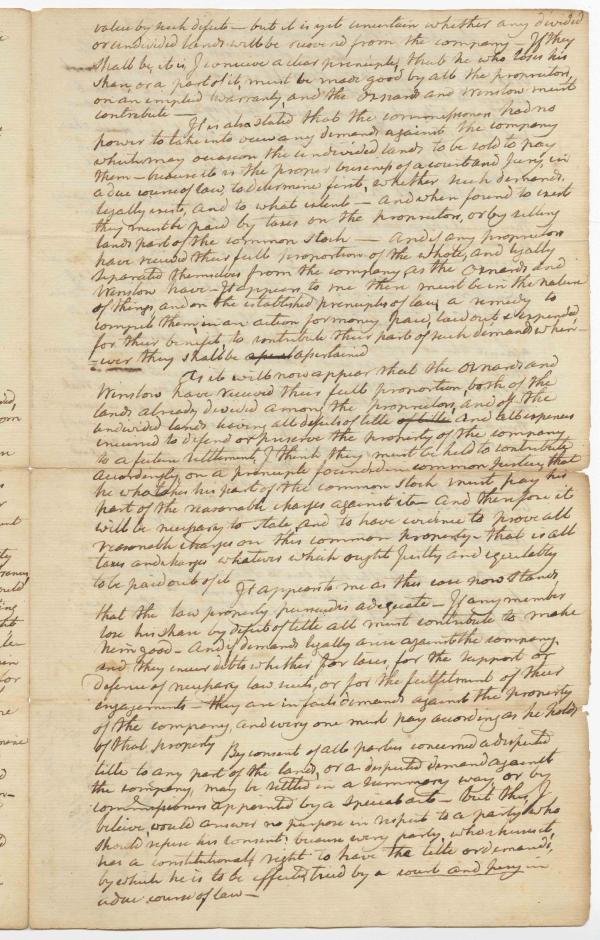 value by such defects — but it is yet uncertain whether any divided
or undivided lands will be recovered from the company — If they
shall be, it is, I conceive a clear principle, that he who loses his
share, or a part of it, must be made good by all the proprietors,
on an implied warranty, and the and Winslow must
contribute —
It is also stated that the commissioners had no
power to take into view any demands against the company
which may occasion the undivided lands to be sold to pay
them — because it is the proper business of a court and jury, in
a due course of law, to determine first, whether such demands
legally exist, and to what extent — and when found to exist
they must be paid by taxes on the proprietors, or by selling
lands part of the common stock — And if any proprietors
have received their full proportion of the whole, and legally
separated themselves from the company, as the and
Winslow have — It appears to me there must be in the nature
of things, and on the established principles of law, a remedy to
compel them in an action for money paid, laid out & expended
for their benefit, to contribute their part of such demands when-
=ever they shall be ascertained
As it will now appear that the and
Winslow have received their full proportion, both of the
lands already divided among the proprietors, and of the
undivided lands all defects of title of title and all expenses
incurred to defend or preserve the property of the company
to a future settlement, I think they must be held to contribute
accordingly, on a principle founded in common justice, that
he who takes his part of the common stock must pay his
part of the reasonable charges against it — And therefore it
will be necessary to state, and to have evidence to prove all
reasonable charges on this common property — that is all
taxes and charges whatever which ought justly and equitably
to be paid out of it
It appears to me as this case now stands,
that the law properly pursued is adequate — If any member
lose his share by defect of title all must contribute to make
him good — And if demands legally arise against the company,
and they incur debts whether for taxes, for the support or
defence of necessary law suits, or for the fulfilment of their
engagements — they are in fact demands against the property
of the company, and every one must pay according as he holds
of that property
By consent of all parties concerned a disputed
title to any part of the lands, or a disputed demand against
the company, may be settled in a summary way, or by
commissioners appointed by a special act — But this, I
believe, would answer no purpose in respect to a party who
should refuse his consent; because every party, who
has a constitutional right to have the title or demands,
by which he is to be affected, tried by a court and jury in
a due course of law —